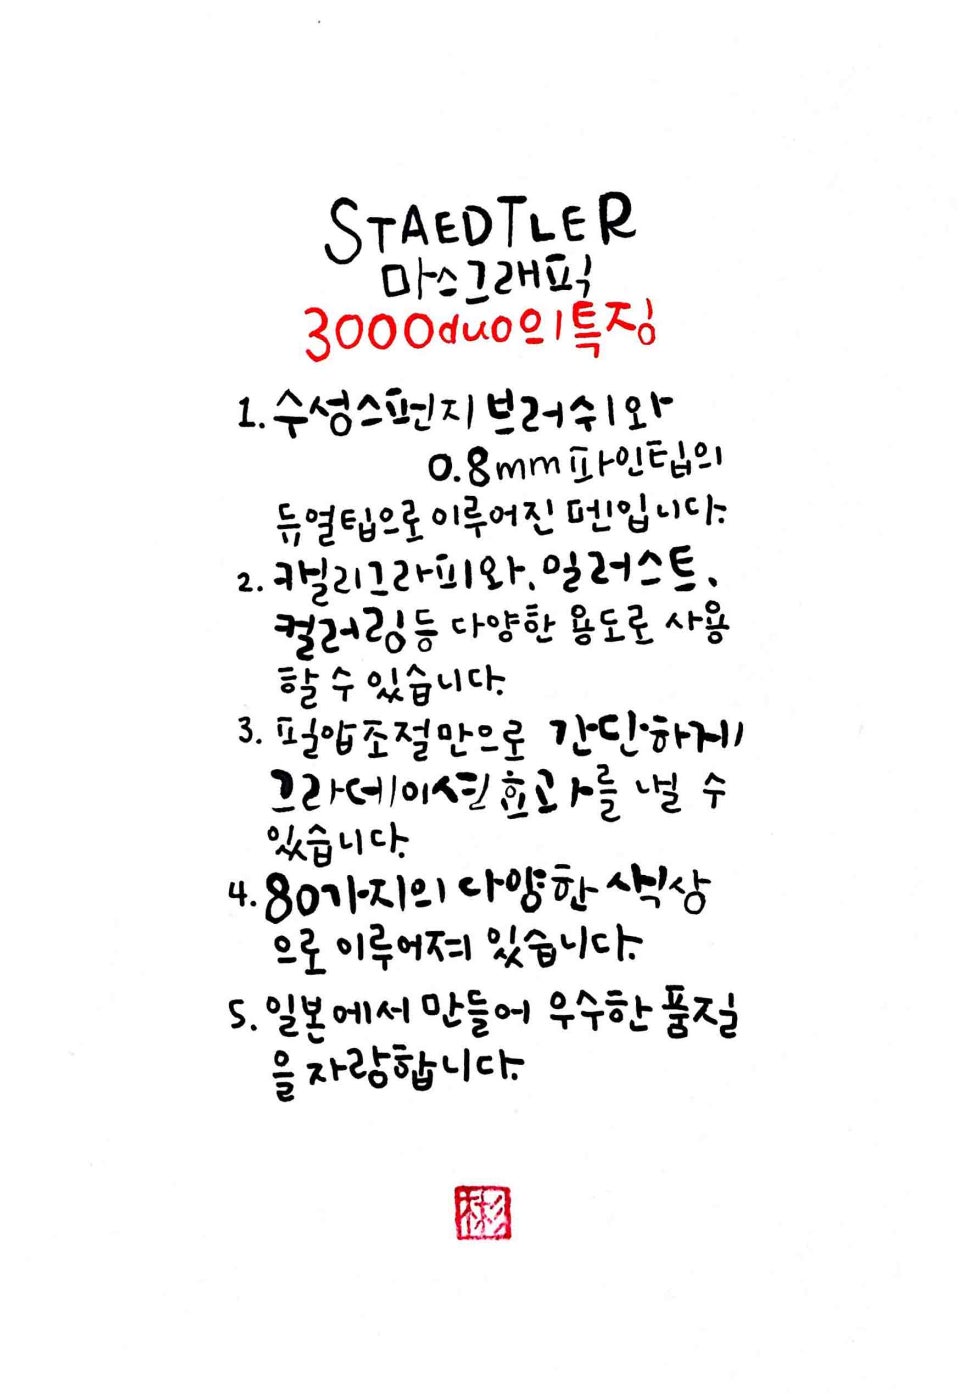 STAEDTLER
마스그래픽
3000duo의특징
1. 수성스펀지 브러쉬와
0.8mm 파인팁의
듀얼팁으로 이루어진 펜입니다.
2. 캘리그라피와, 일러스트,
컬러링등 다양한 용도로 사용
할 수 있습니다.
3. 필압조절만으로 간단하게
그라데이션 효과를 낼 수
있습니다.
4. 80가지의 다양한 색상
으로 이루어져 있습니다.
5. 일본에서 만들어 우수한 품질
을 자랑합니다.